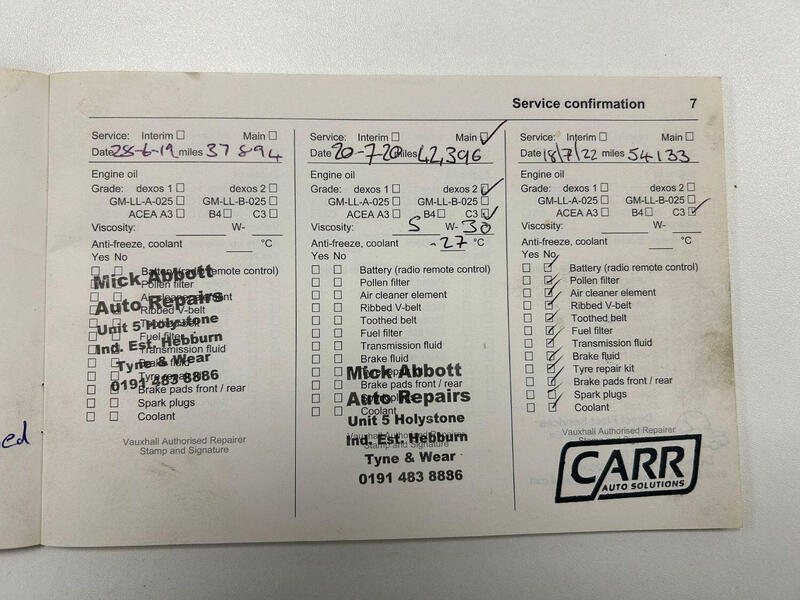 Service confirmation 7
Service: Interim Main
Date 28-6-19 miles 37894
Engine oil
Grade: dexos 1 dexos 2
GM-LL-A-025 GM-LL-B-025
ACEA A3 B4 C3
Viscosity: W-
Anti-freeze, coolant °C
Yes No
Battery (radio remote control)
Pollen filter
Air cleaner element
Ribbed V-belt
Toothed belt
Fuel filter
Transmission fluid
Brake fluid
Tyre repair kit
Brake pads front / rear
Spark plugs
Coolant
Mick Abbott
Auto Repairs
Unit 5 Holystone
Ind. Est. Hebburn
Tyne & Wear
0191 483 8886
Vauxhall Authorised Repairer
Stamp and Signature
Service: Interim Main
Date 20-7-20 miles 42,396
Engine oil
Grade: dexos 1 dexos 2
GM-LL-A-025 GM-LL-B-025
ACEA A3 B4 C3
Viscosity: 5 W- 30
Anti-freeze, coolant -27 °C
Yes No
Battery (radio remote control)
Pollen filter
Air cleaner element
Ribbed V-belt
Toothed belt
Fuel filter
Transmission fluid
Brake fluid
Brake pads front / rear
Spark plugs
Coolant
Mick Abbott
Auto Repairs
Unit 5 Holystone
Ind. Est. Hebburn
Tyne & Wear
0191 483 8886
Vauxhall Authorised Repairer
Stamp and Signature
Service: Interim Main
Date 18/7/22 miles 54133
Engine oil
Grade: dexos 1 dexos 2
GM-LL-A-025 GM-LL-B-025
ACEA A3 B4 C3
Viscosity: W-
Anti-freeze, coolant °C
Yes No
Battery (radio remote control)
Pollen filter
Air cleaner element
Ribbed V-belt
Toothed belt
Fuel filter
Transmission fluid
Brake fluid
Tyre repair kit
Brake pads front / rear
Spark plugs
Coolant
Vauxhall Authorised Repairer
Stamp and Signature
CARR
AUTO SOLUTIONS
ed